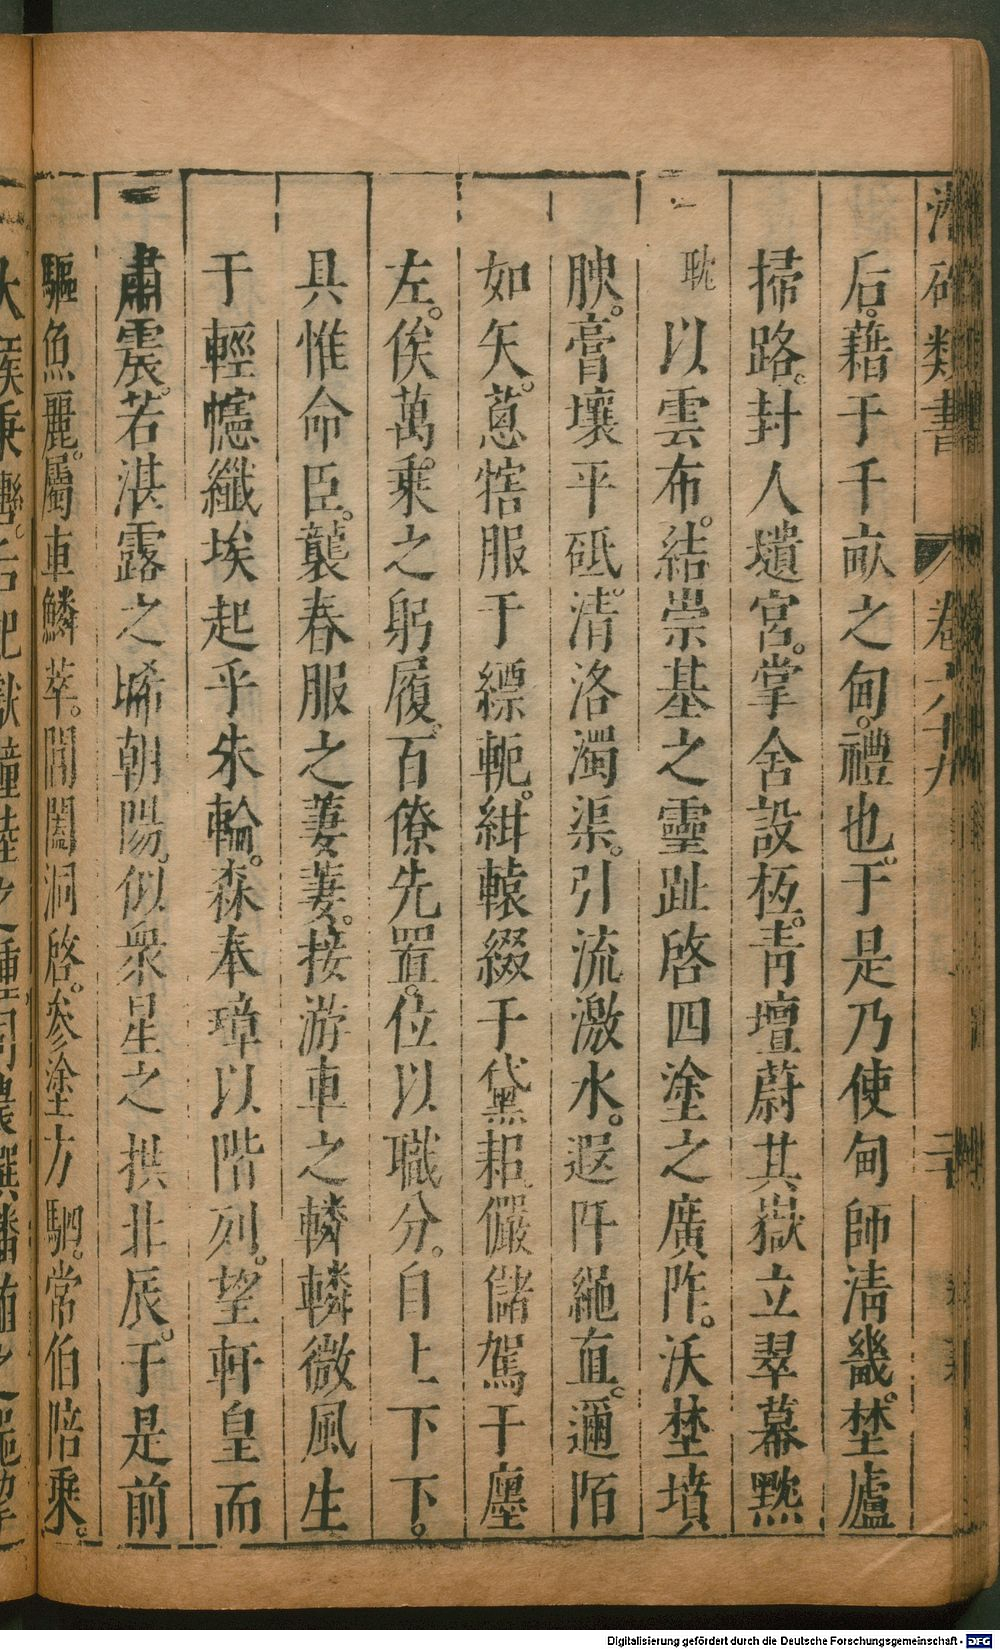 類書 卷六十九
后。藉于千畝之甸。禮也。于是乃使甸師淸畿。埜廬
掃路。封人壝宮。掌舍設枑。靑壇蔚其嶽立翠幕黕
耽以雲布。結崇基之靈趾啓四塗之廣阼。沃埜墳
腴。膏壤平砥。淸洛濁渠。引流激水。遐阡繩直。邇陌
如矢。蔥犗服于縹軛。紺轅綴于黛耜儼儲駕于廛
左。俟萬乘之躬履。百僚先置。位以職分。自上下下。
具惟命臣。襲春服之萋萋。接游車之轔轔微風生
于輕幰纖埃起乎朱輪。森奉璋以階列。望軒皇而
肅震。若湛露之晞朝陽。似衆星之拱北辰。于是前
驅魚麗。屬車鱗萃。閶闔洞啓。參塗方駟。常伯陪乘。
Digitalisierung gefördert durch die Deutsche Forschungsgemeinschaft - DFG